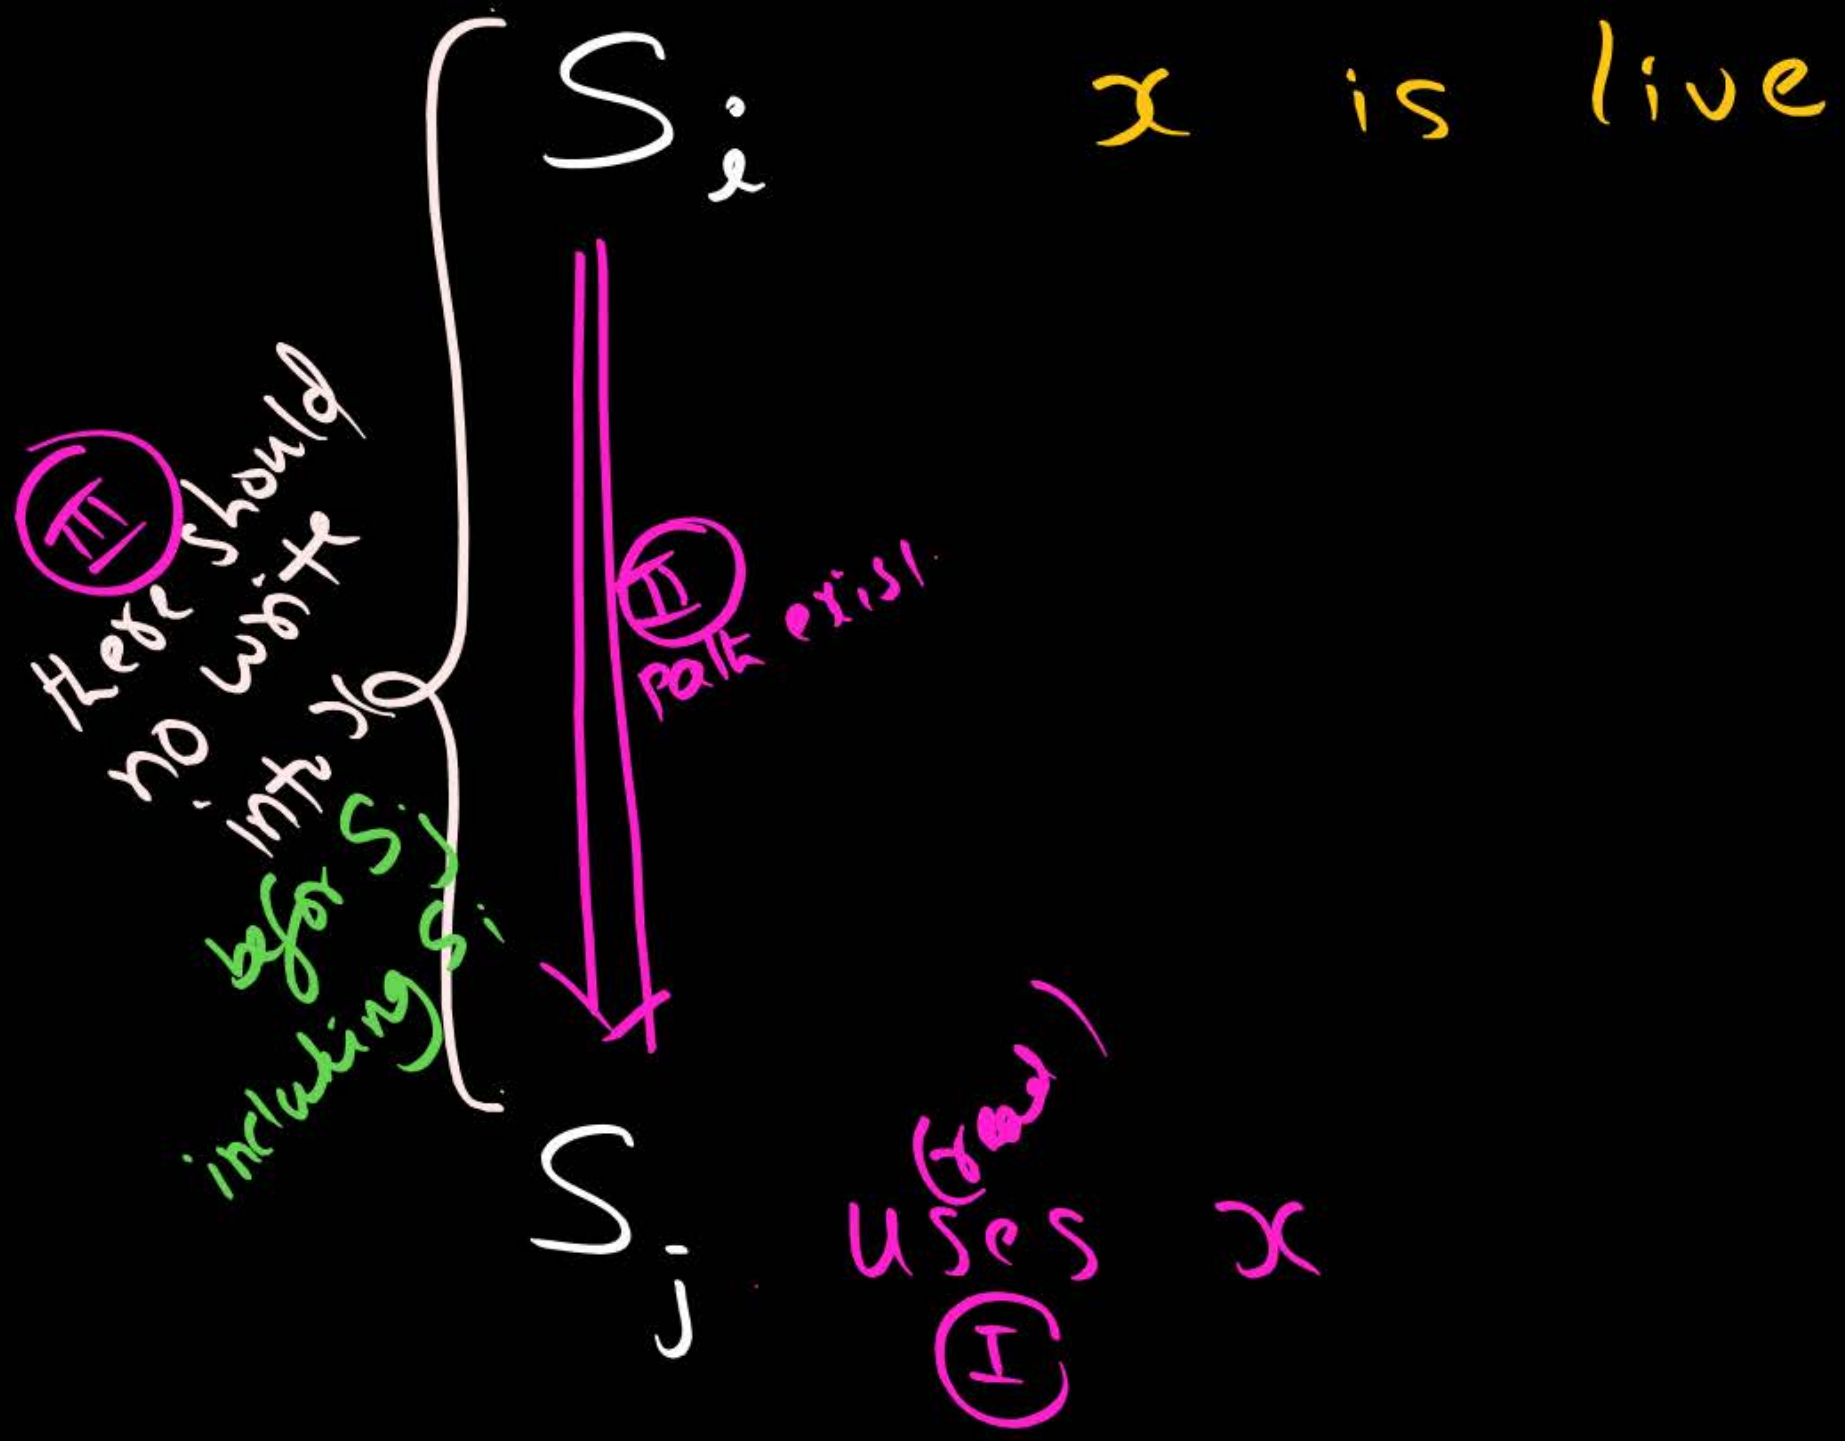 Si x is live
III
there should
no write
into x
befor Sj
including Si
II
path exist
(read)
Sj uses x
I